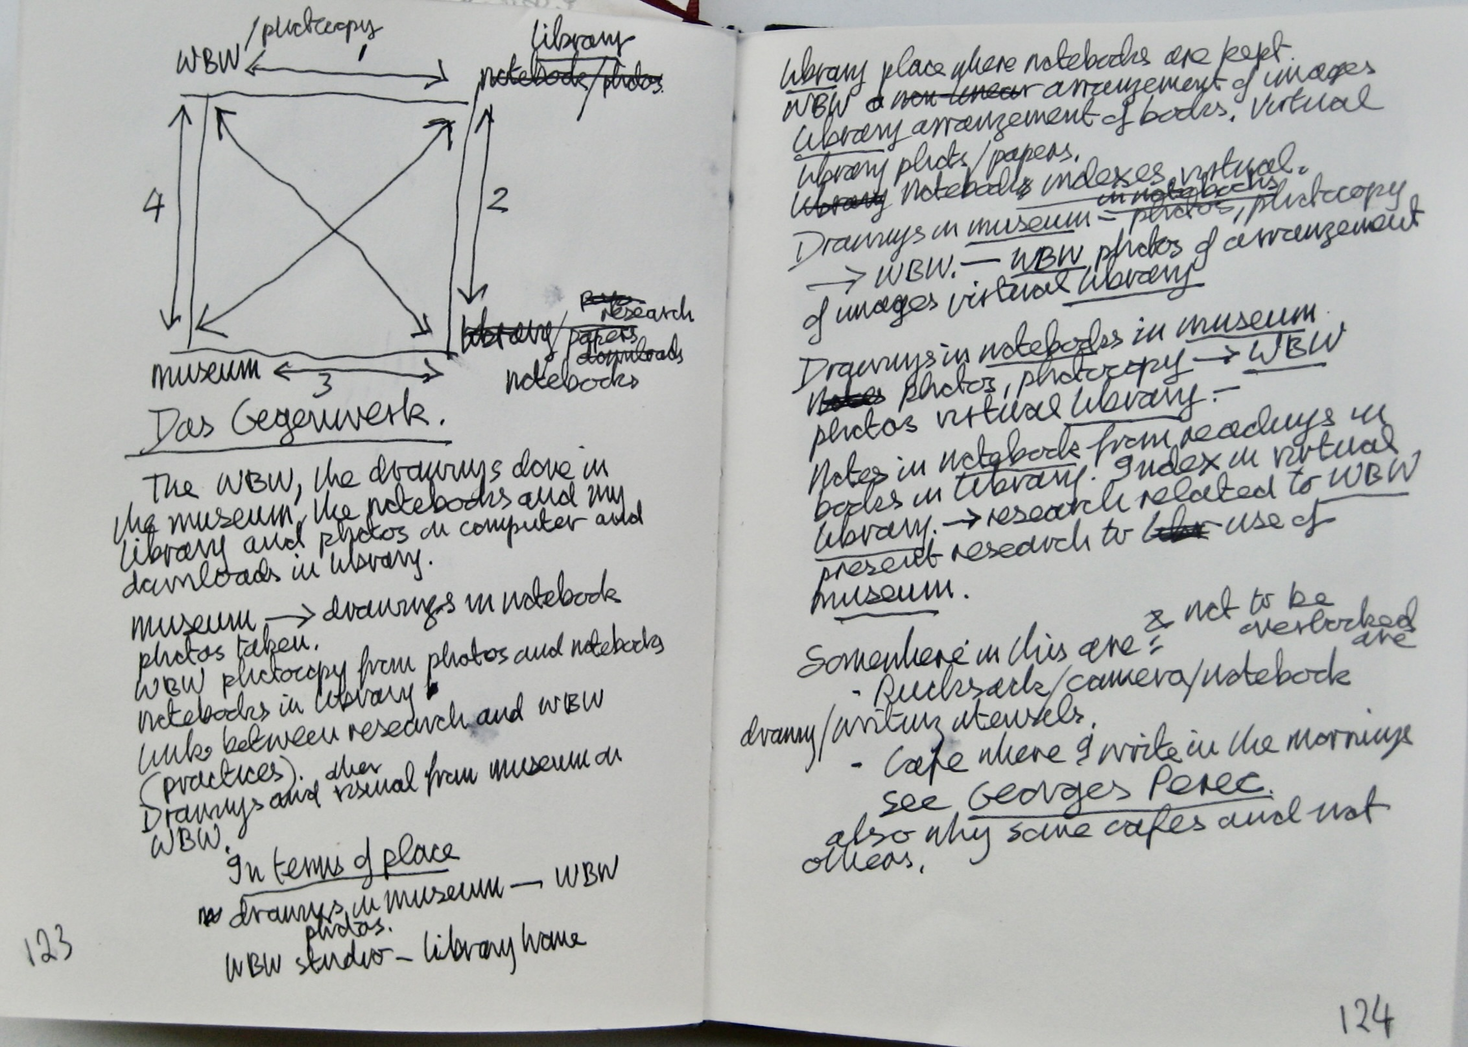 WBW /photocopy
library
notebook/photos
1
4
2
research
library/papers
downloads
notebooks
museum
3
Das Gegenwerk.
The WBW, the drawings done in
the museum, the notebooks and my
library and photos on computer and
downloads in library.
museum → drawings in notebook
photos taken.
WBW photocopy from photos and notebooks
notebooks in library
links between research and WBW
(practices).
Drawings and other visual from museum on
WBW.
In terms of place
drawings in museum — WBW
photos.
WBW studio – library home
123
library place where notebooks are kept.
WBW a non-linear arrangement of images
library arrangement of books. virtual
library photos/papers.
library notebooks indexes virtual.
in notebooks
Drawings in museum = photos, photocopy
→ WBW. — WBW photos of arrangement
of images virtual library
Drawings in notebooks in museum
Notes photos, photocopy → WBW
photos virtual library. –
Notes in notebook from readings in
books in library. Index in virtual
library. → research related to WBW
present research to use of
museum.
Somewhere in this are : & not to be
overlooked
are
- Rucksack/camera/notebook
drawing/writing utensels.
- Cafe where I write in the mornings
see Georges Perec.
also why some cafes and not
others.
124